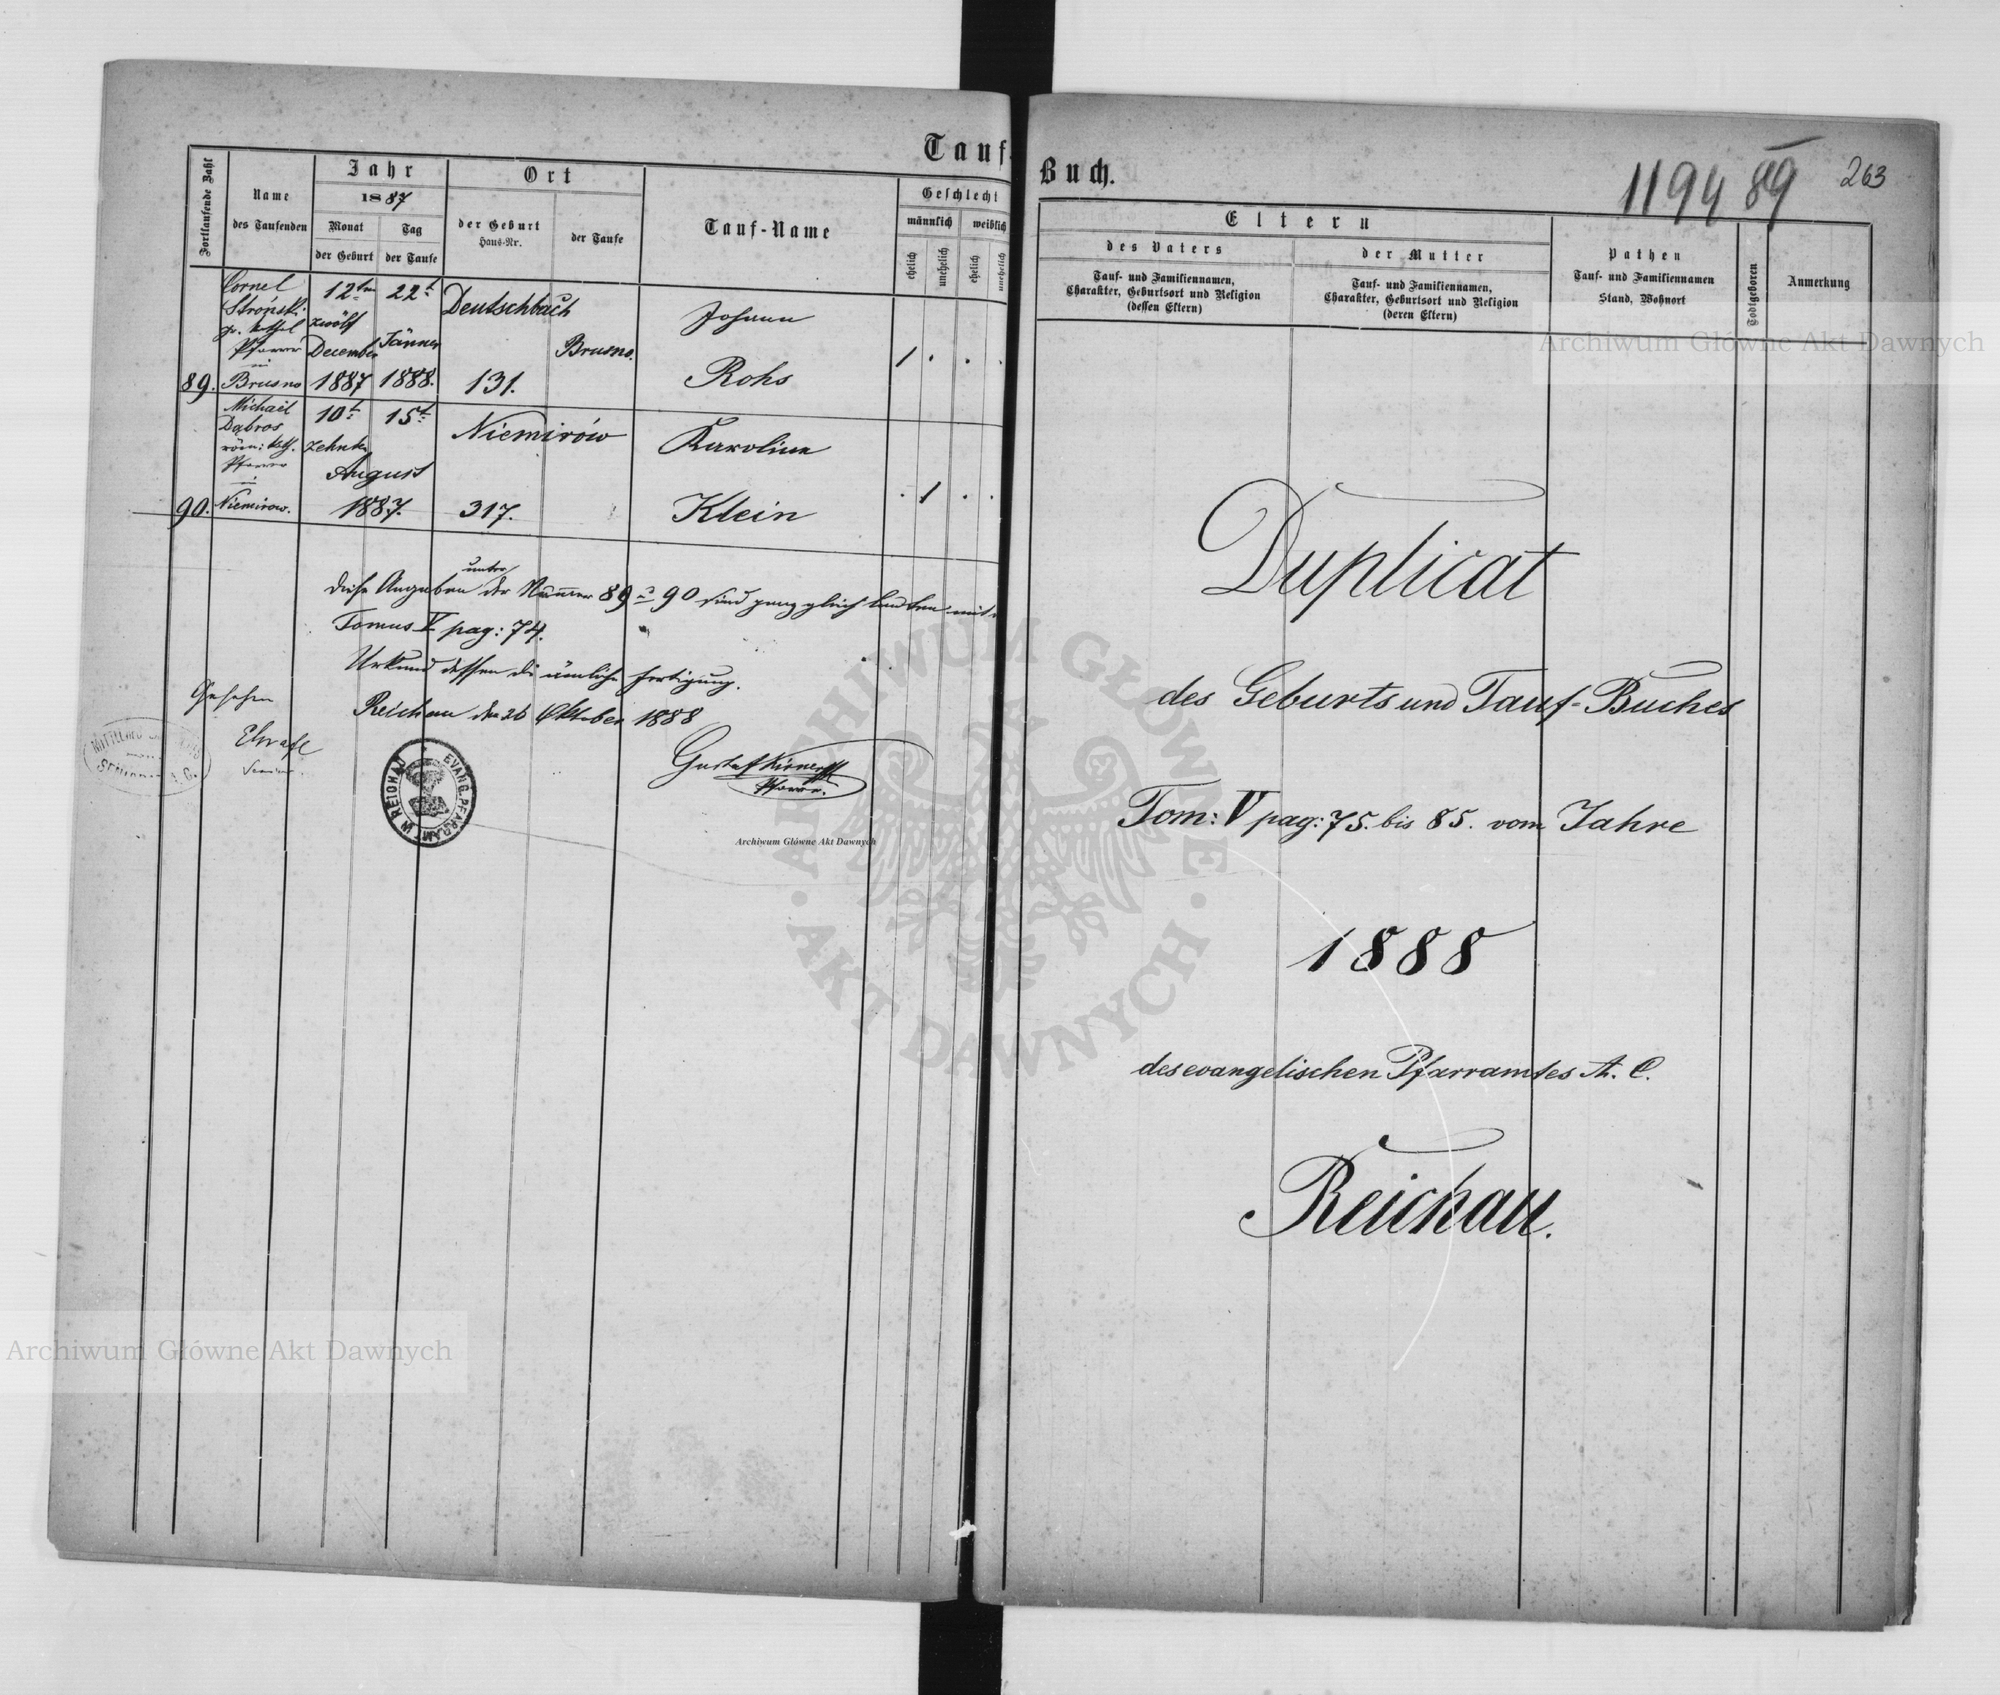 Tauf-
Fortlaufende Zahl
Name
des Taufenden
Jahr
1887
Monat
der Geburt
Tag
der Taufe
Ort
der Geburt
Haus-Nr.
der Taufe
Tauf-Name
Geschlecht
männlich
weiblich
ehelich
unehelich
ehelich
unehelich
89.
Cornel
Stroński
Pfarrer
in
Brusno
12ten
zwölf
December
1887
22t
Jänner
1888.
Deutschbach
131.
Brusno.
Johann
Rohs
1
90.
Michael
Dąbros
röm: kath.
Pfarrer
in
Niemirow.
10t
15t
Zehnte
August
1887.
Niemirów
317.
Karoline
Klein
1
diese Angaben unter der Nummer 89 u 90 sind ganz gleich lautend mit
Tomus V pag: 74.
Urkund dessen die ämtliche Fertigung.
Reichau den 26 Oktober 1888
Gesehen
Senior.
EVANG. PFARRAMT IN REICHAU
Gustaf
Pfarrer.
Archiwum Główne Akt Dawnych
Buch.
1194
89
263
Eltern
des Vaters
Tauf- und Familiennamen,
Charakter, Geburtsort und Religion
(dessen Eltern)
der Mutter
Tauf- und Familiennamen,
Charakter, Geburtsort und Religion
(deren Eltern)
Pathen
Tauf- und Familiennamen
Stand, Wohnort
Todtgeboren
Anmerkung
Archiwum Główne Akt Dawnych
Duplicat
des Geburts und Tauf-Buches
Tom: V pag: 75. bis 85. vom Jahre
1888
des evangelischen Pfarramtes A. C.
Reichau.
ARCHIWUM GŁÓWNE
AKT DAWNYCH
Archiwum Główne Akt Dawnych